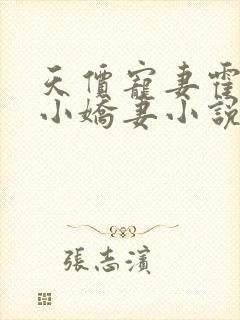 天價寵妻霍
小嬌妻小說
張志濱